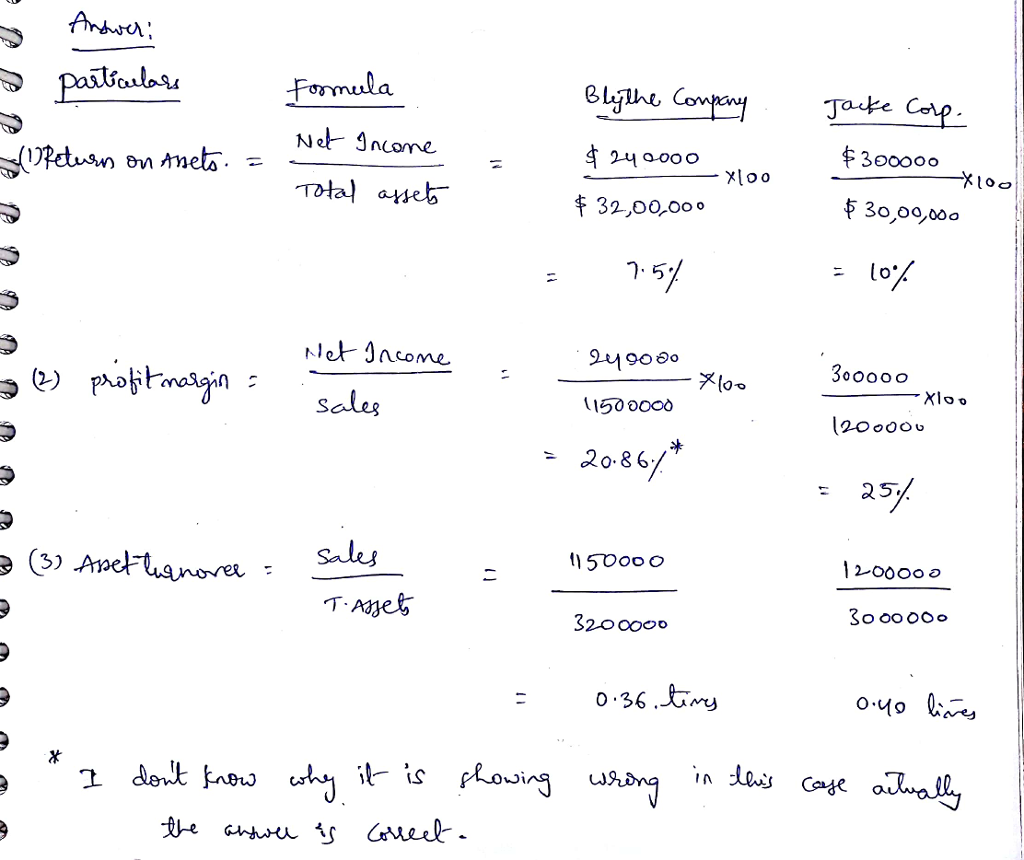 Answer:
Particulars Formula Blythe Company Jacke Corp.
(1) Return on Assets. = Net Income / Total assets = $ 240000 / $ 32,00,000 X100 $ 300000 / $ 30,00,000 X100
= 7.5% = 10%
(2) profit margin = Net Income / Sales = 240000 / 11500000 X100 300000 / 1200000 X100
= 20.86%* = 25%
(3) Asset turnover = Sales / T. Assets = 1150000 / 3200000 1200000 / 3000000
= 0.36 times 0.40 times
* I don't know why it is showing wrong in this case actually
the answer is correct.